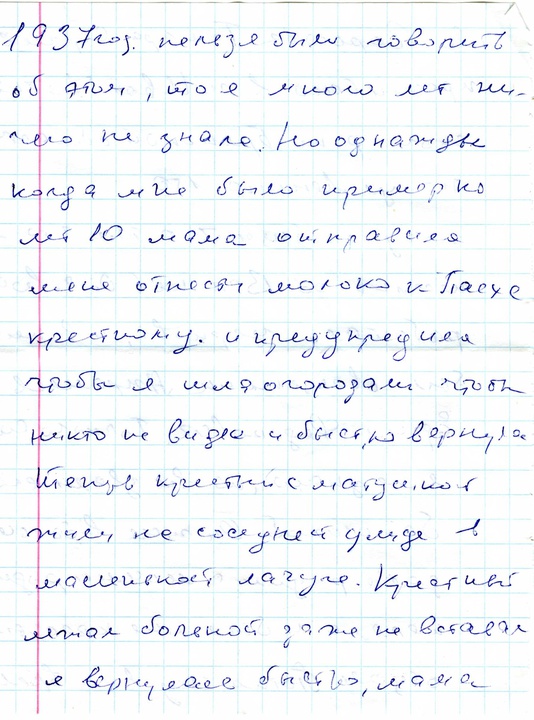 1937 год. нельзя было говорить
об этом, что я много лет ни-
чего не знала. Но однажды
когда мне было примерно
лет 10 мама отправила
меня отнести молоко к Пасхе
крестному. и предупредила
чтобы я шла огородами чтобы
никто не видел и быстро вернулась
крестный с матушкой
жили на соседней улице в
маленькой лачуге. Крестный
лежал больной даже не вставал
я вернулась быстро, мама